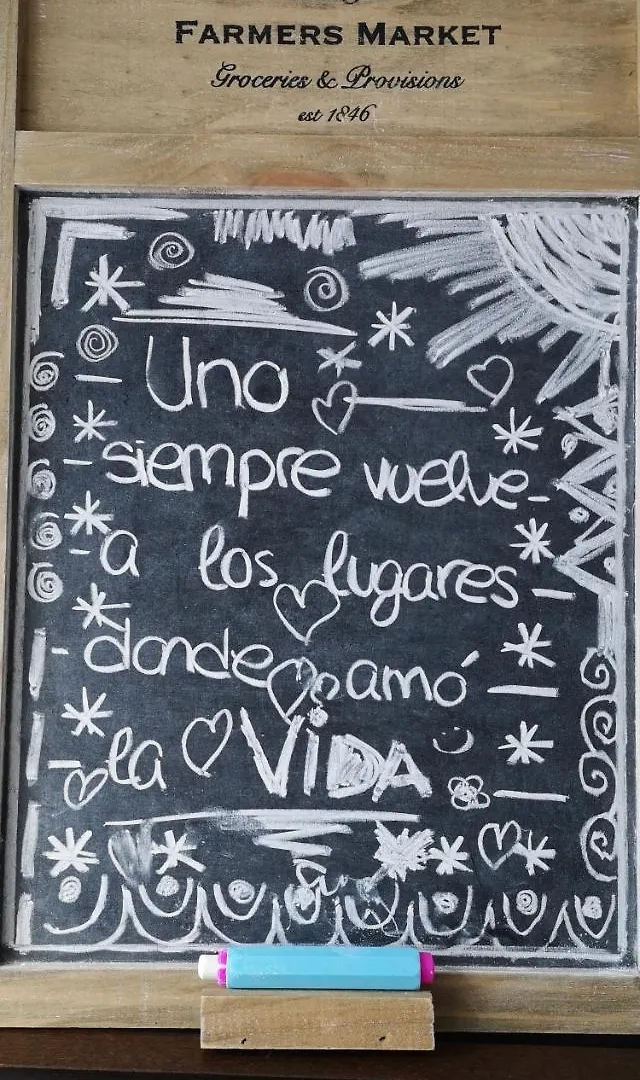 FARMERS MARKET
Groceries & Provisions
est 1846
Uno
siempre vuelve
a los lugares
donde amó
la ViDA